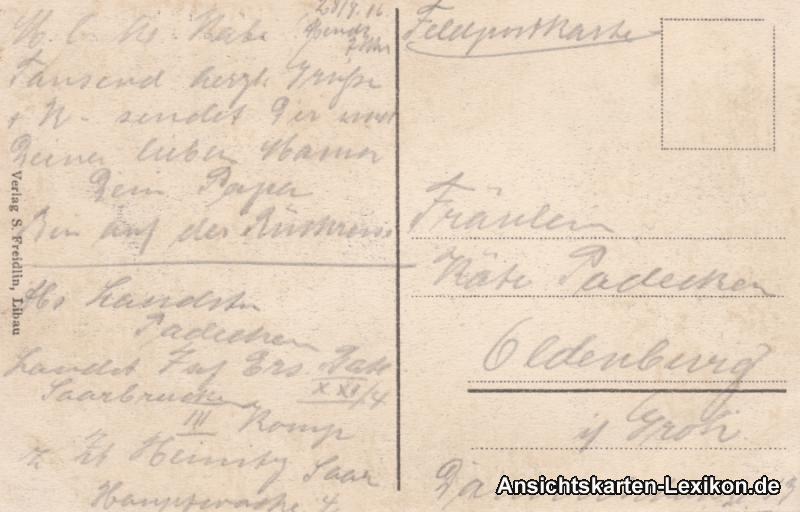 28/9.16
M. l. Käte
Tausend herzl. Grüße
+ K- sendet Dir und
Deiner lieben Mama
Dein Papa
Bin auf der Rückreise
Abs Landstm
Padecken
Landst Inf Ers. Batl
Saarbrücken XXI/4
III Komp
z. Zt Heinitz Saar
Hauptwache 4
Verlag S. Freidlin, Libau
Feldpostkarte
Fräulein
Käte Padecken
Oldenburg
i/ Groh.
Ansichtskarten-Lexikon.de